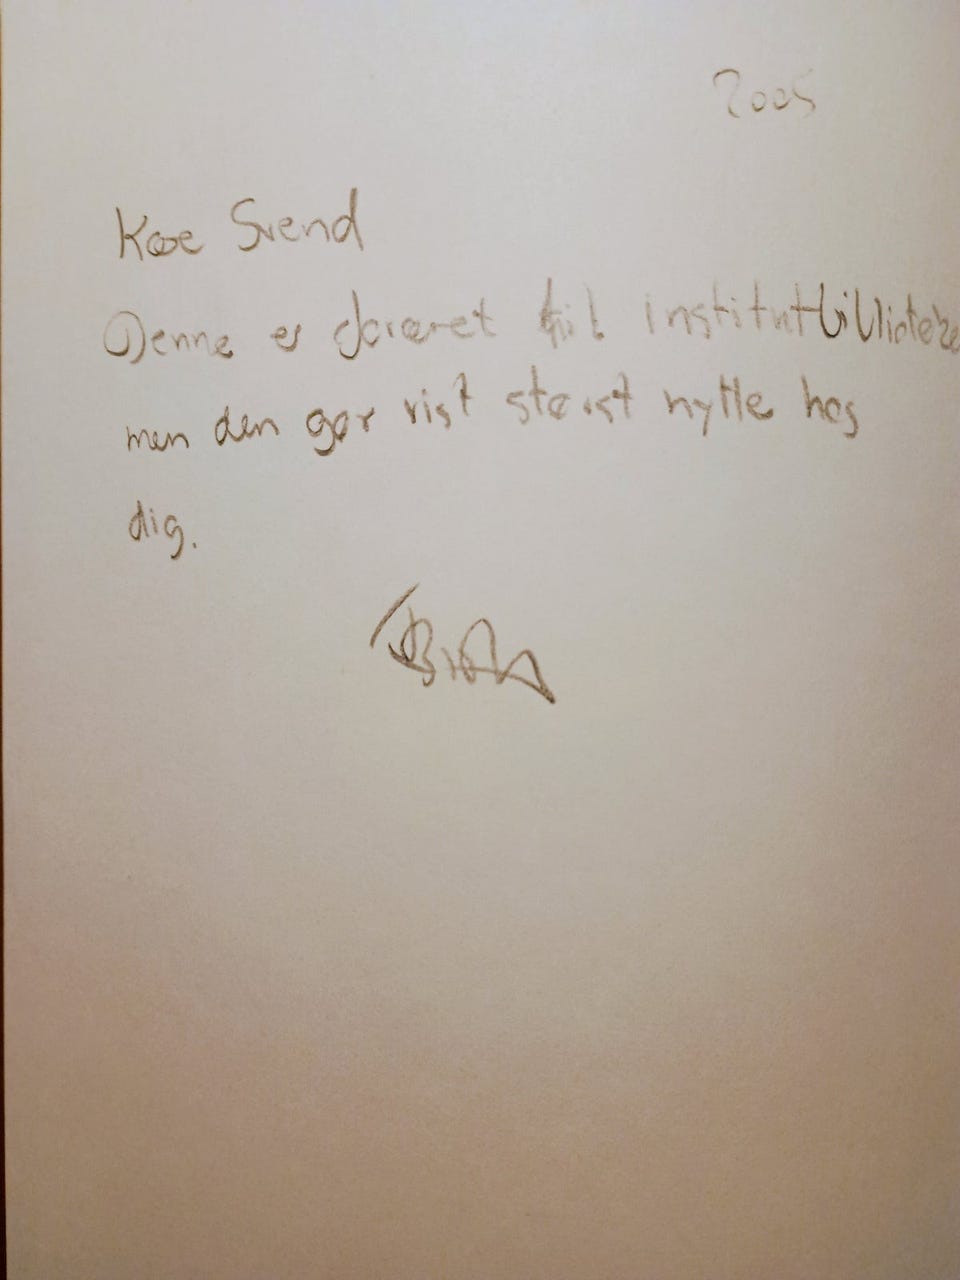 2005
Kære Svend
Denne er doneret til institutbibliotek
men den gør vist størst nytte hos
dig.